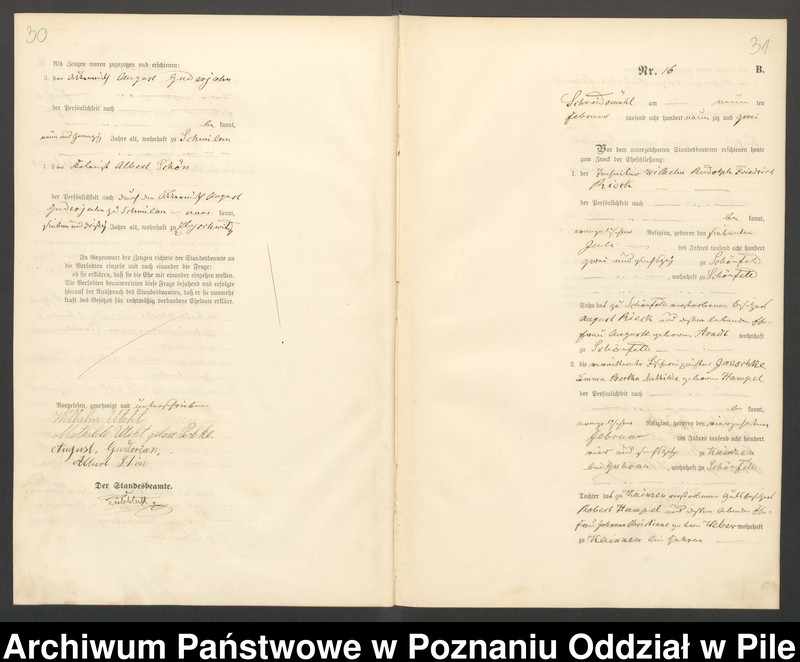 30
Als Zeugen waren zugezogen und erschienen:
3. der Ackerwirth August Guderjahn
der Persönlichkeit nach
be kannt,
neun und zwanzig Jahre alt, wohnhaft zu Schmilau
4. der Kolonist Albert Schön
der Persönlichkeit nach durch den Ackerwirth August
Guderjahn zu Schmilau aner kannt,
sieben und dreißig Jahre alt, wohnhaft zu
In Gegenwart der Zeugen richtete der Standesbeamte an
die Verlobten einzeln und nach einander die Frage:
ob sie erklären, daß sie die Ehe mit einander eingehen wollen.
Die Verlobten beantworteten diese Frage bejahend und erfolgte
hierauf der Ausspruch des Standesbeamten, daß er sie nunmehr
kraft des Gesetzes für rechtmäßig verbundene Eheleute erkläre.
Vorgelesen, genehmigt und unterschrieben
Wilhelm
Mathilde geborne
August Guderian
Albert Schön
Der Standesbeamte.
31
Nr. 16
B.
Schneidemühl am neun ten
Februar tausend acht hundert neun zig und zwei
Vor dem unterzeichneten Standesbeamten erschienen heute
zum Zweck der Eheschließung:
1. der Wilhelm Rudolph Friedrich
Rieck
der Persönlichkeit nach
be kannt,
evangelischer Religion, geboren den siebenten
Juli des Jahres tausend acht hundert
zwei und fünfzig zu Schönfeld
, wohnhaft zu Schönfeld
Sohn des zu Schönfeld verstorbenen Besitzers
August Rieck und dessen lebenden Ehe-
frau Auguste geborene Arndt wohnhaft
zu Schönfeld
2. die verwittwete Jaeschke
Emma Bertha Mathilde geborene Hampel
der Persönlichkeit nach
be kannt,
evangelischer Religion, geboren den vierzehnten
Februar des Jahres tausend acht hundert
vier und fünfzig zu Kainzen
bei Guhrau, wohnhaft zu Schönfeld
Tochter des zu Kainzen verstorbenen Gutsbesitzers
Robert Hampel und dessen lebenden Ehe-
frau Johanna Christiane geborne Weber wohnhaft
zu Kainzen bei Guhrau
Archiwum Państwowe w Poznaniu Oddział w Pile